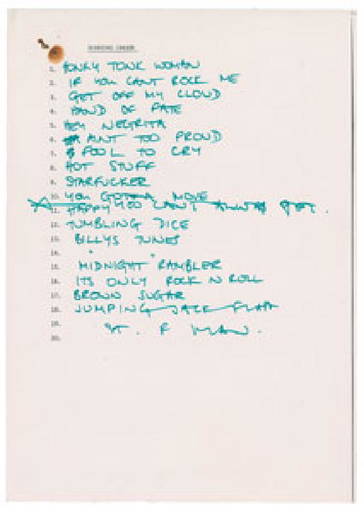 RUNNING ORDER
1. HONKY TONK WOMAN
2. IF YOU CANT ROCK ME
3. GET OFF MY CLOUD
4. HAND OF FATE
5. HEY NEGRITA
6. AINT TOO PROUD
7. FOOL TO CRY
8. HOT STUFF
9. STARFUCKER
10. YOU GOTTA MOVE
11. HAPPY YOU CAN'T ALWAYS GET.
12. TUMBLING DICE
13. BILLYS TUNES
14. " "
15. MIDNIGHT RAMBLER
16. ITS ONLY ROCK N ROLL
17. BROWN SUGAR
18. JUMPING JACK FLASH
19. ST. F MAN.
20.